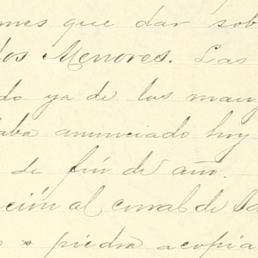 mes que dar sob
los Menores. Las
do ya de los man
aba anunciado hoy
s de fin de año.
ción al corral de
s piedra acopia